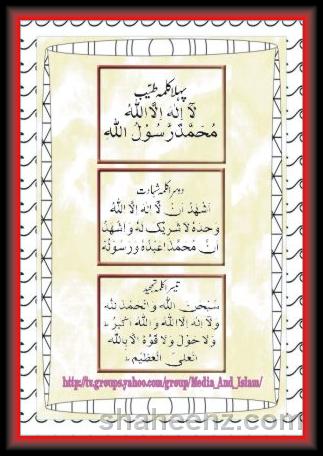 پہلا کلمہ طیّب
لَآ اِلٰهَ اِلَّا اللّٰهُ
مُحَمَّدٌ رَّسُوْلُ اللّٰهِ
دوسرا کلمہ شہادت
اَشْهَدُ اَنْ لَّآ اِلٰهَ اِلَّا اللّٰهُ
وَحْدَهٗ لَا شَرِيْكَ لَهٗ وَاَشْهَدُ
اَنَّ مُحَمَّدًا عَبْدُهٗ وَرَسُوْلُهٗ
تیسرا کلمہ تمجید
سُبْحٰنَ اللّٰهِ وَالْحَمْدُ لِلّٰهِ
وَلَآ اِلٰهَ اِلَّا اللّٰهُ وَاللّٰهُ اَكْبَرُ ط
وَلَا حَوْلَ وَلَا قُوَّةَ اِلَّا بِاللّٰهِ
الْعَلِيِّ الْعَظِيْمِ ط
http://tv.groups.yahoo.com/group/Media_And_Islam/
shaheenz.com